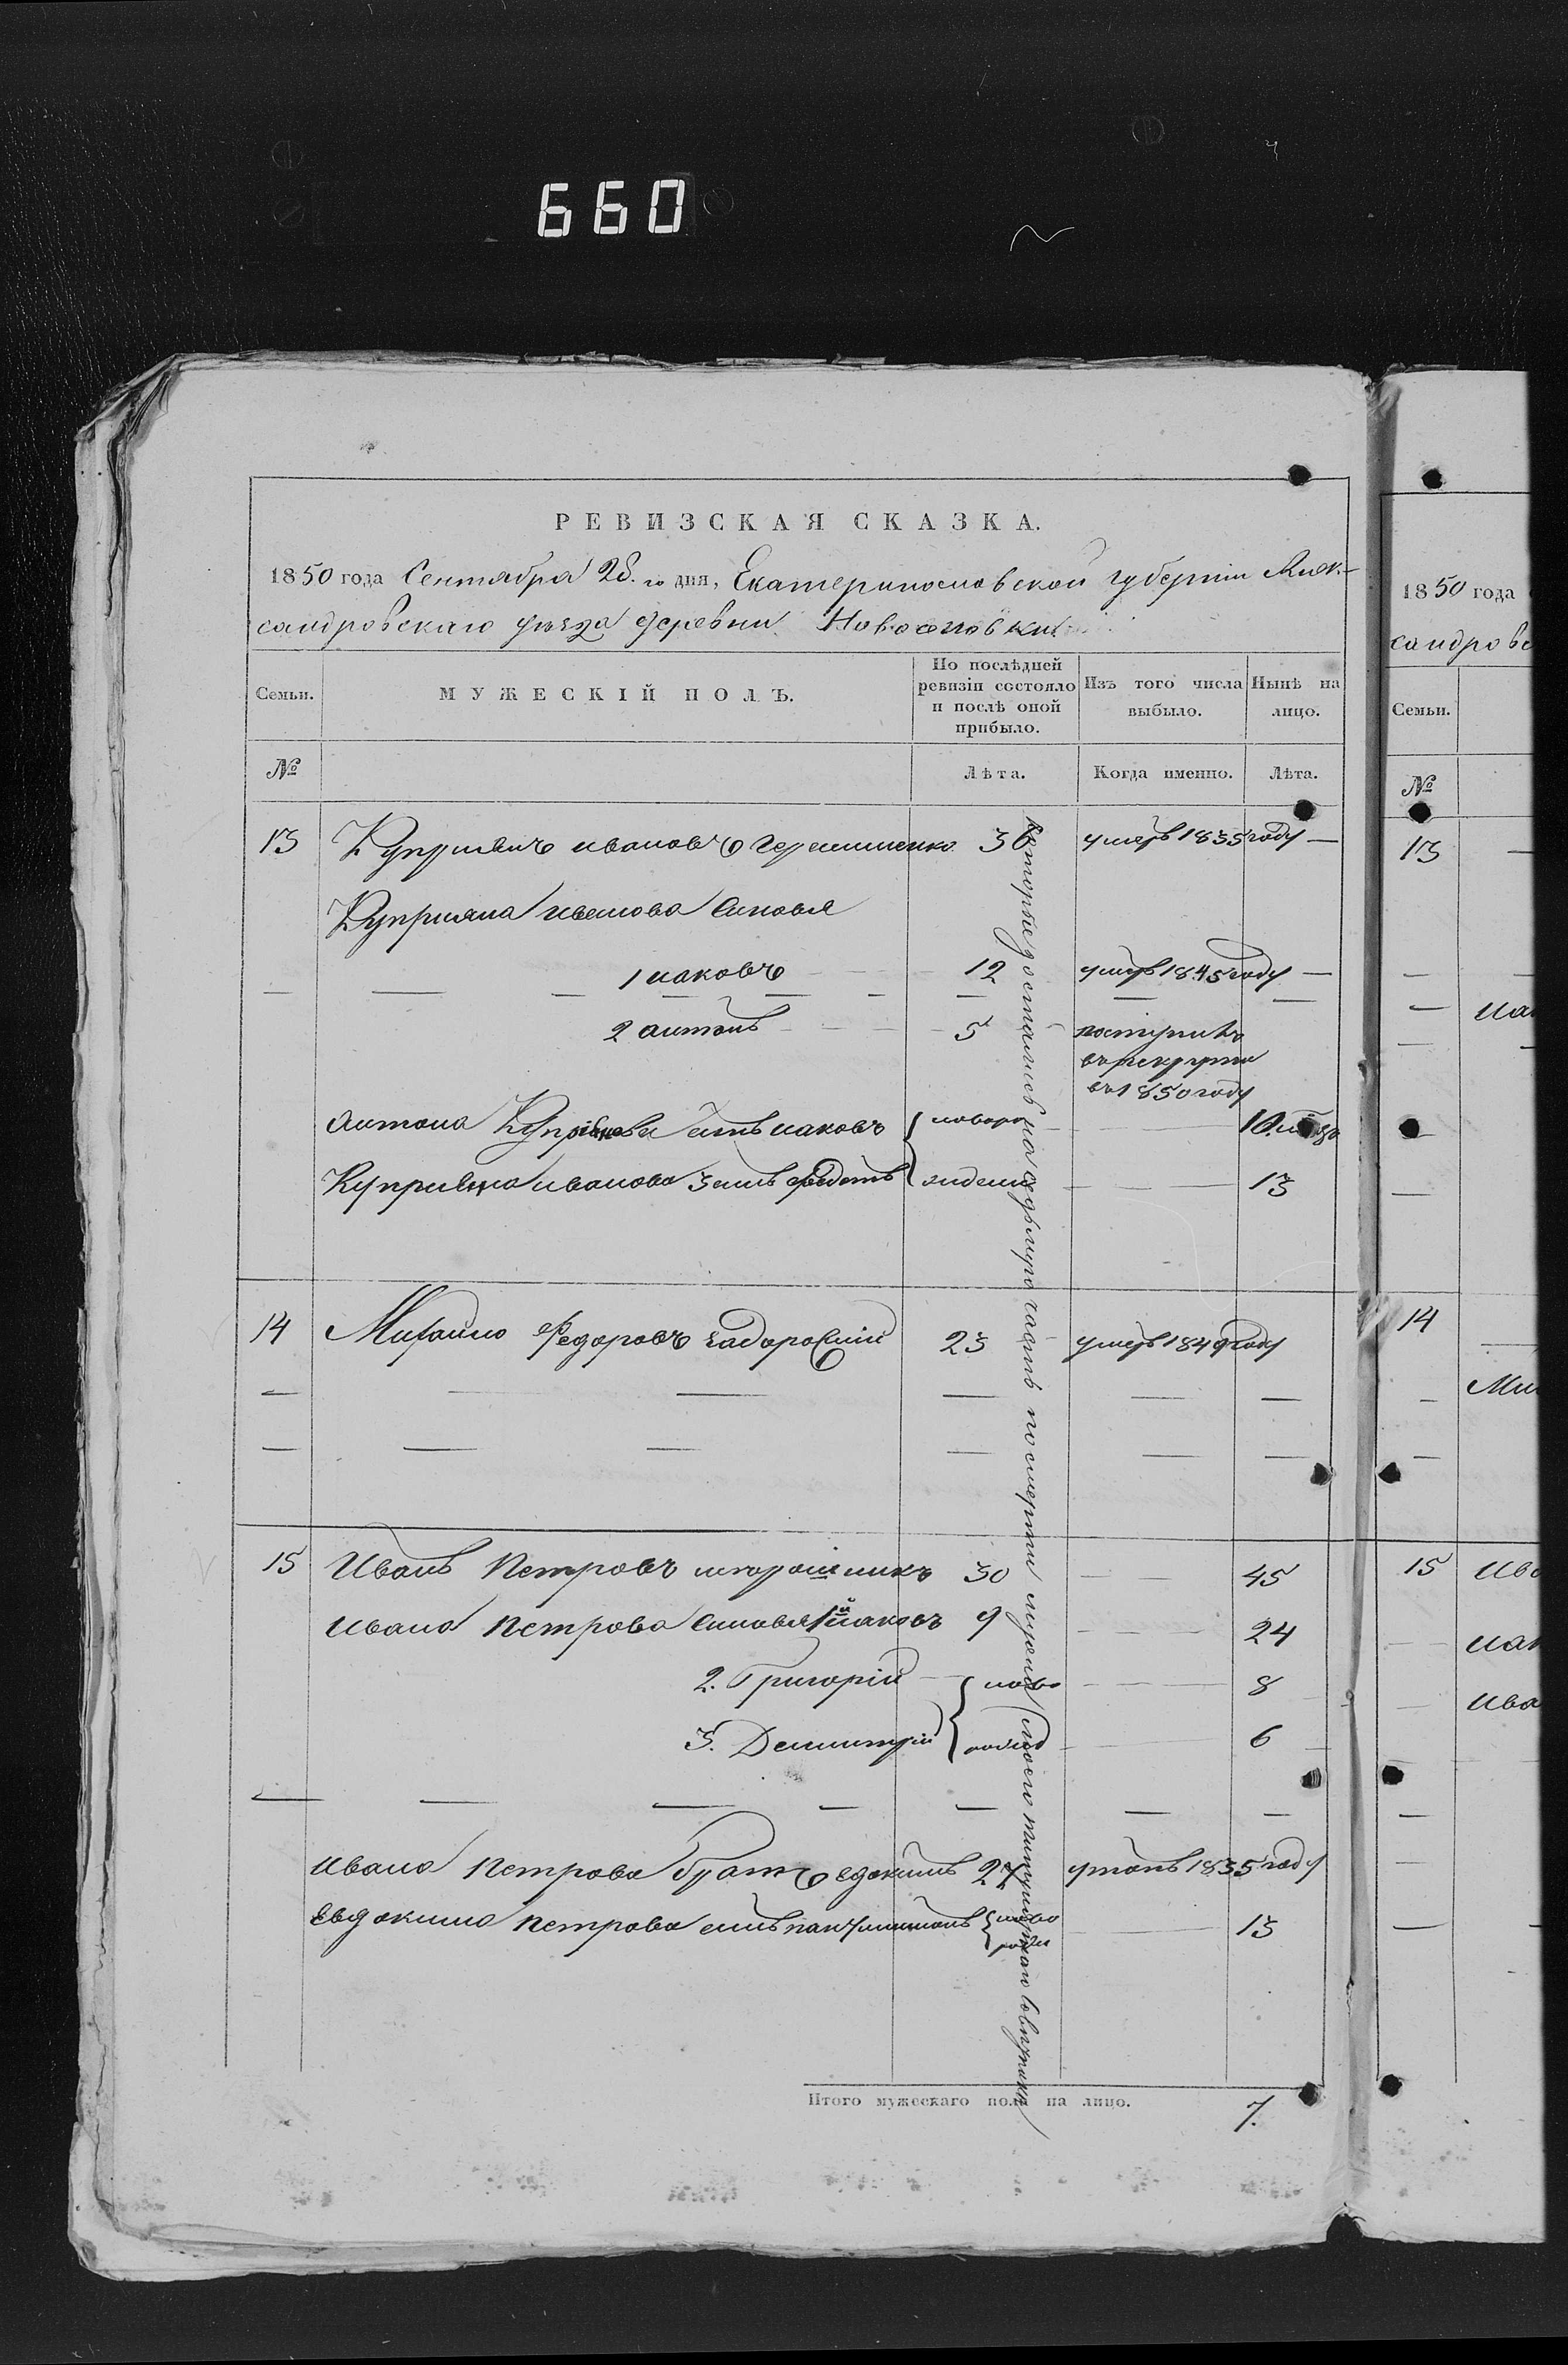 660
РЕВИЗСКАЯ СКАЗКА.
1850 года Сентября 28. го дня, Екатеринославской губерніи Алек-
сандровскаго уѣзда деревни Новоосновки
Семьи.
МУЖЕСКІЙ ПОЛЪ.
По послѣдней ревизіи состояло и послѣ оной прибыло.
Изъ того числа выбыло.
Нынѣ на лицо.
№
Лѣта.
Когда именно.
Лѣта.
13 Куприянъ ивановъ 30 умеръ 1835 году —
Куприяна иванова Сыновья
1 иаковъ 12 умеръ 1845 году —
2 антонъ 5 поступилъ
въ рекруты
въ 1850 году
антона Куприянова сынъ иаковъ новоро 10.
Куприяна иванова 3 сынъ федотъ жденые 13
14 Михайло Федоровъ задорожній 23 умеръ 1849 году
15 Иванъ Петровъ 30 45
Ивана Петрова Сыновья 1й иаковъ 9 24
2. Григорій ново 8
3. Димитрій рожд 6
ивана Петрова братъ евдокимъ 27 1835 году
Евдокима Петрова сынъ ново 13
рожден
Которые достались по раздѣлу часть по смерти мужа моего
Итого мужескаго пола на лицо. 7.
1850 года
сандровс
Семьи.
№
13
иак
14
Мих
15 ива
иак
ива